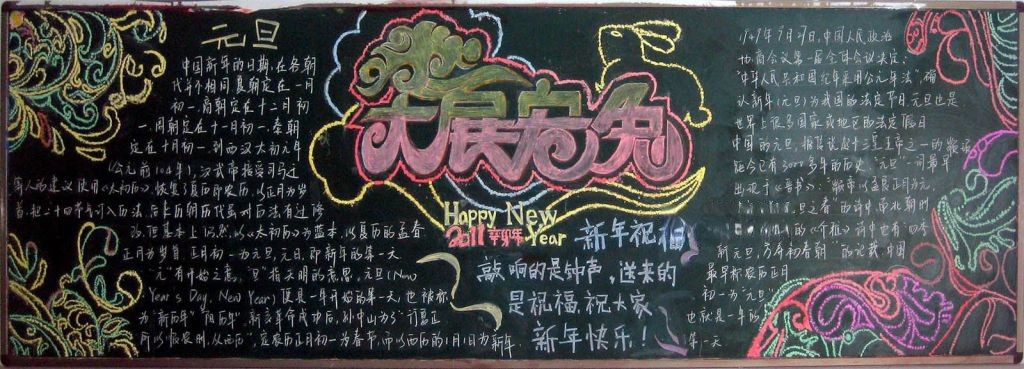 元旦
中国新年的日期,在各朝
代并不相同.夏朝定在一月
初一,商朝定在十二月初
一,周朝定在十一月初一,秦朝
定在十月初一,到西汉太初元年
(公元前104年),汉武帝接受司马迁
等人的建议使用《太初历》,恢复夏历即农历,以正月为岁
首,把二十四节气订入历法,后来历朝历代虽对历法有过修
改,但基本上仍然以《太初历》为蓝本,以夏历的孟春
正月为岁首,正月初一为元旦,元日,即新年的第一天
"元"有开始之意,"旦"指天明的意思.元旦(New
Year's Day, New Year)便是一年开始的第一天,也被称
为"新历年""阳历年".新亥革命成功后,孙中山为了"行夏正
所以顺农时,从西历",定农历正月初一为春节,而以西历的1月1日为新年.
大展宏兔
Happy New
2011 辛卯年 Year
新年祝福
敲响的是钟声,送来的
是祝福,祝大家
新年快乐!
1949年9月27日,中国人民政治
协商会议第一届全体会议决定:
"中华人民共和国纪年采用公元年法",确
认新年(元旦)为我国的法定节日.元旦也是
世界上很多国家或地区的法定假日
中国的元旦,据传说起于三皇五帝之一的
距今已有3000多年的历史."元旦"一词最早
出现于《晋书》:"以孟夏正月为元
旦之春"的诗中.南北朝时
的《介雅》诗中也有"四季
新元旦,万寿初春朝"的记载.中国
最早称农历正月
初一为"元旦"
也就是一年的
第一天